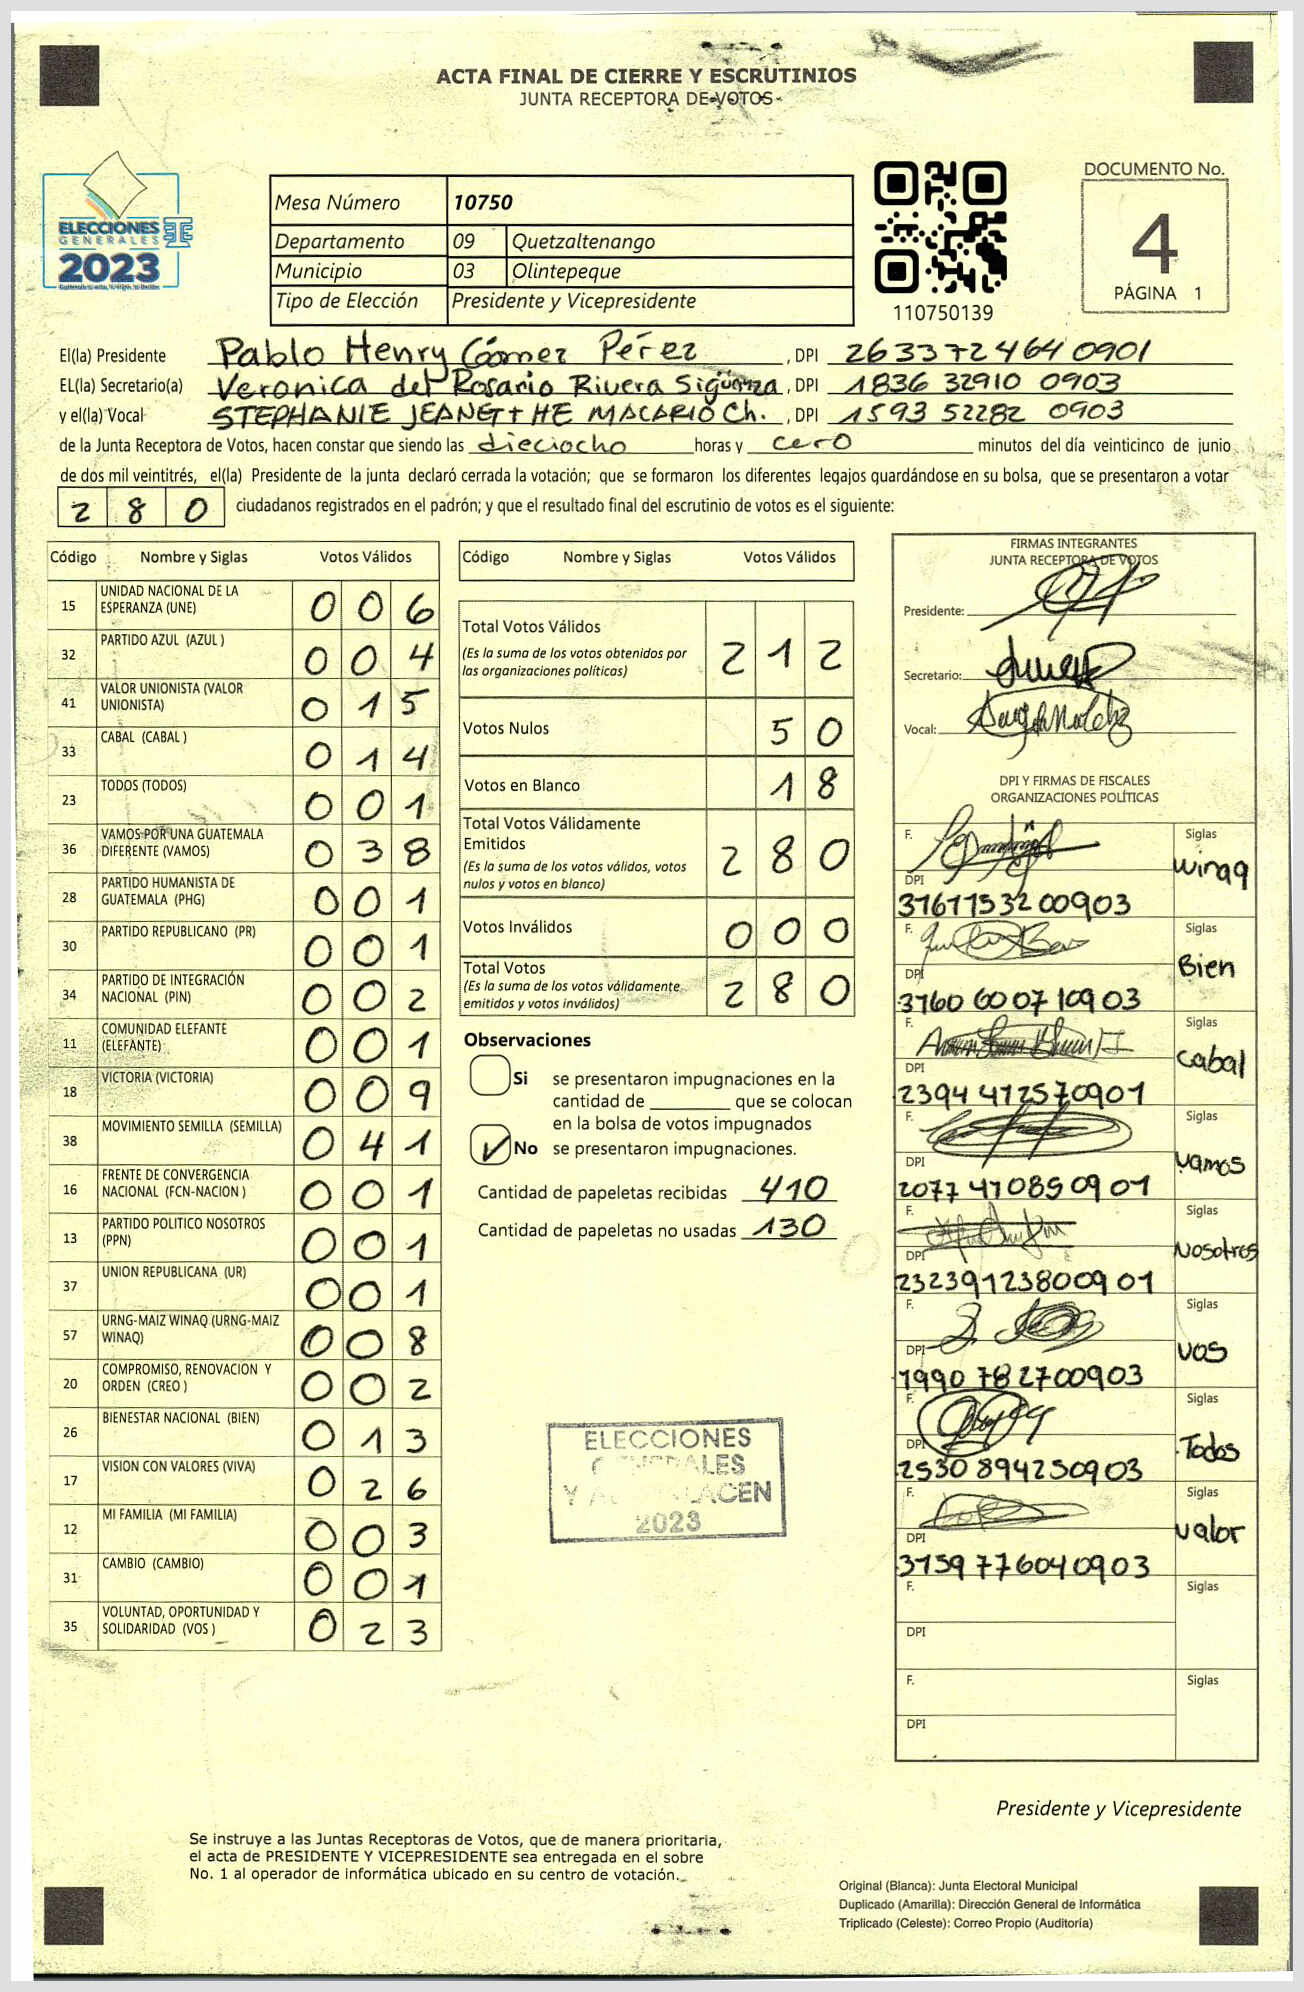 ACTA FINAL DE CIERRE Y ESCRUTINIOS
JUNTA RECEPTORA DE VOTOS
ELECCIONES
GENERALES
2023
Mesa Número 10750
Departamento 09 Quetzaltenango
Municipio 03 Olintepeque
Tipo de Elección Presidente y Vicepresidente
110750139
DOCUMENTO No.
4
PÁGINA 1
El(la) Presidente Pablo Henry Gómez Pérez, DPI 2633724640901
EL(la) Secretario(a) Veronica del Rosario Rivera Sigüenza, DPI 1836 32910 0903
y el(la) Vocal STEPHANIE JEANETTHE MACARIO Ch., DPI 1593 52282 0903
de la Junta Receptora de Votos, hacen constar que siendo las dieciocho horas y cero minutos del día veinticinco de junio
de dos mil veintitrés, el(la) Presidente de la junta declaró cerrada la votación; que se formaron los diferentes legajos guardándose en su bolsa, que se presentaron a votar
280 ciudadanos registrados en el padrón; y que el resultado final del escrutinio de votos es el siguiente:
Código Nombre y Siglas Votos Válidos
15 UNIDAD NACIONAL DE LA ESPERANZA (UNE) 006
32 PARTIDO AZUL (AZUL ) 004
41 VALOR UNIONISTA (VALOR UNIONISTA) 015
33 CABAL (CABAL ) 014
23 TODOS (TODOS) 001
36 VAMOS POR UNA GUATEMALA DIFERENTE (VAMOS) 038
28 PARTIDO HUMANISTA DE GUATEMALA (PHG) 001
30 PARTIDO REPUBLICANO (PR) 001
34 PARTIDO DE INTEGRACIÓN NACIONAL (PIN) 002
11 COMUNIDAD ELEFANTE (ELEFANTE) 001
18 VICTORIA (VICTORIA) 009
38 MOVIMIENTO SEMILLA (SEMILLA) 041
16 FRENTE DE CONVERGENCIA NACIONAL (FCN-NACION ) 001
13 PARTIDO POLITICO NOSOTROS (PPN) 001
37 UNION REPUBLICANA (UR) 001
57 URNG-MAIZ WINAQ (URNG-MAIZ WINAQ) 008
20 COMPROMISO, RENOVACION Y ORDEN (CREO ) 002
26 BIENESTAR NACIONAL (BIEN) 013
17 VISION CON VALORES (VIVA) 026
12 MI FAMILIA (MI FAMILIA) 003
31 CAMBIO (CAMBIO) 001
35 VOLUNTAD, OPORTUNIDAD Y SOLIDARIDAD (VOS ) 023
Código Nombre y Siglas Votos Válidos
Total Votos Válidos 212
(Es la suma de los votos obtenidos por
las organizaciones políticas)
Votos Nulos 50
Votos en Blanco 18
Total Votos Válidamente
Emitidos 280
(Es la suma de los votos válidos, votos
nulos y votos en blanco)
Votos Inválidos 000
Total Votos 280
(Es la suma de los votos válidamente
emitidos y votos inválidos)
Observaciones
Si se presentaron impugnaciones en la
cantidad de ________ que se colocan
en la bolsa de votos impugnados
No se presentaron impugnaciones.
Cantidad de papeletas recibidas 410
Cantidad de papeletas no usadas 130
ELECCIONES
GENERALES
2023
FIRMAS INTEGRANTES
JUNTA RECEPTORA DE VOTOS
Presidente:
Secretario:
Vocal:
DPI Y FIRMAS DE FISCALES
ORGANIZACIONES POLÍTICAS
F. Siglas
winaq
DPI
3161153200903
F. Siglas
Bien
DPI
3760 60071 0903
F. Siglas
cabal
DPI
2394 472570901
F. Siglas
vamos
DPI
2077 470850901
F. Siglas
Nosotros
DPI
23239123800901
F. Siglas
vos
DPI
1990 782700903
F. Siglas
Todos
DPI
2530 894250903
F. Siglas
valor
DPI
3759 776040903
F. Siglas
DPI
F. Siglas
DPI
Presidente y Vicepresidente
Se instruye a las Juntas Receptoras de Votos, que de manera prioritaria,
el acta de PRESIDENTE Y VICEPRESIDENTE sea entregada en el sobre
No. 1 al operador de informática ubicado en su centro de votación.
Original (Blanca): Junta Electoral Municipal
Duplicado (Amarilla): Dirección General de Informática
Triplicado (Celeste): Correo Propio (Auditoría)